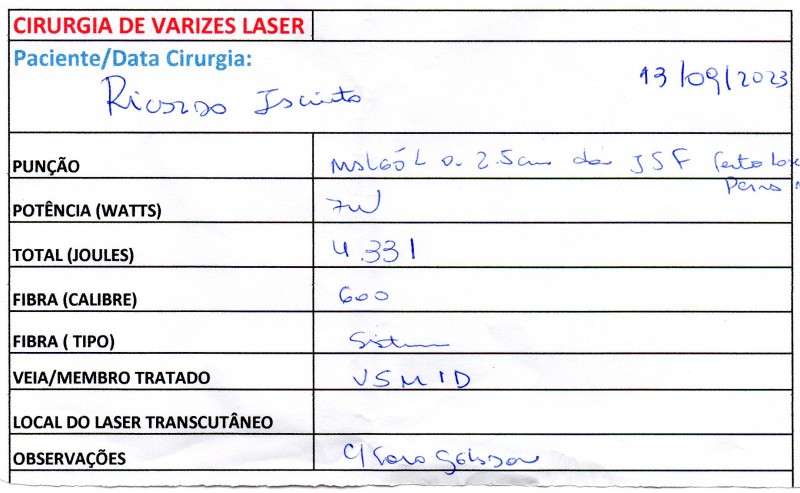 CIRURGIA DE VARIZES LASER
Paciente/Data Cirurgia:
13/09/2023
Ricardo Jacinto
PUNÇÃO a 2.5cm da JSF
POTÊNCIA (WATTS) 7W
TOTAL (JOULES) 4.331
FIBRA (CALIBRE) 600
FIBRA ( TIPO)
VEIA/MEMBRO TRATADO VSMID
LOCAL DO LASER TRANSCUTÂNEO
OBSERVAÇÕES